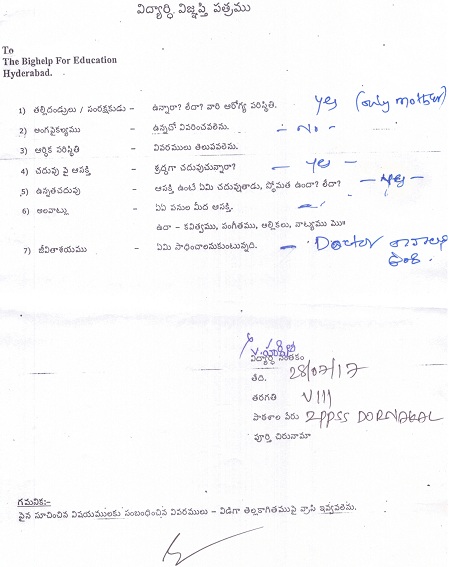 విద్యార్థి విజ్ఞప్తి పత్రము
To
The Bighelp For Education
Hyderabad.
1) తల్లిదండ్రులు / సంరక్షకుడు - ఉన్నారా? లేదా? వారి ఆరోగ్య పరిస్థితి. yes (only mother)
2) అంగవైకల్యము - ఉన్నచో వివరించవలెను. - NO -
3) ఆర్థిక పరిస్థితి - వివరములు తెలుపవలెను.
4) చదువు పై ఆసక్తి - శ్రద్దగా చదువుచున్నారా? - yes -
5) ఉన్నతచదువు - ఆసక్తి ఉంటే ఏమి చదువుతాడు, స్తోమత ఉందా? లేదా? - yes -
6) అలవాట్లు - ఏఏ పనుల మీద ఆసక్తి. -
ఉదా - కవిత్వము, సంగీతము, అల్లికలు, నాట్యము మొ॥
7) జీవితాశయము - ఏమి సాధించాలనుకుంటున్నది. - Doctor కావాలని
ఉంది.
విద్యార్థి సంతకం
తేది. 28/07/17
తరగతి VIII
పాఠశాల పేరు ZPPSS DORNAKAL
పూర్తి చిరునామా
గమనిక:-
పైన సూచించిన విషయములకు సంబంధించిన వివరములు - విడిగా తెల్లకాగితముపై వ్రాసి ఇవ్వవలెను.